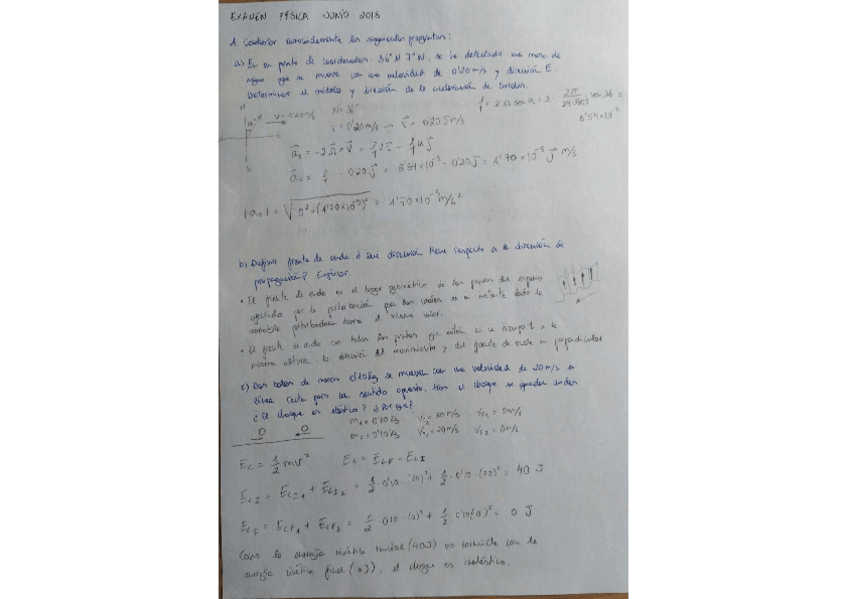 EXAMEN FÍSICA JUNIO 2018
1. Contestar razonadamente las siguientes preguntas:
a) En un punto de coordenadas 36°N 7°W, se ha detectado una masa de
agua que se mueve con una velocidad de 0'20 m/s y dirección E.
Determinar el módulo y dirección de la aceleración de Coriolis.
f = 2 Ω sen α = 2 · 2π / 24·3600 · sen 36 =
8'54×10⁻⁵
v = 0'20 m/s
N = 36°
v = 0'20 m/s
a_c = -2 Ω × V
8'54×10⁻⁵ · 0'20 J = 1'70×10⁻⁵ J m/s
|a_c| = √0² + (1'70×10⁻⁵)² = 1'70×10⁻⁵ m/s²
b) Definir frente de onda. ¿Qué dirección tiene respecto a la dirección de
propagación? Explicar
• El frente de onda es el lugar geométrico de los puntos del espacio
afectado por la perturbación para los cuales en un instante dado la
variable perturbadora toma el mismo valor.
• El frente de onda son todos los puntos que están en un tiempo t a la
misma altura. La dirección del movimiento y del frente de onda es perpendicular
c) Dos bolas de masas 0'10 kg se mueven con una velocidad de 20 m/s en
línea recta pero en sentido opuesto. Tras el choque se quedan unidas
¿El choque es elástico? ¿Por qué?
m₁ = 0'10 kg
m₂ = 0'10 kg
= 20 m/s
= 0 m/s
= 20 m/s
= 0 m/s
E_c = 1/2 mv² E_c = E_cF - E_cI
E_cI = E_cI1 + E_cI2 = 1/2 · 0'10 · (20)² + 1/2 · 0'10 · (20)² = 40 J
E_cI = E_cF1 + E_cF2 = 1/2 · 0'10 · (0)² + 1/2 · 0'10 (0)² = 0 J
Como la energía cinética inicial (40J) no coincide con la
energía cinética final (0J), el choque es inelástico.